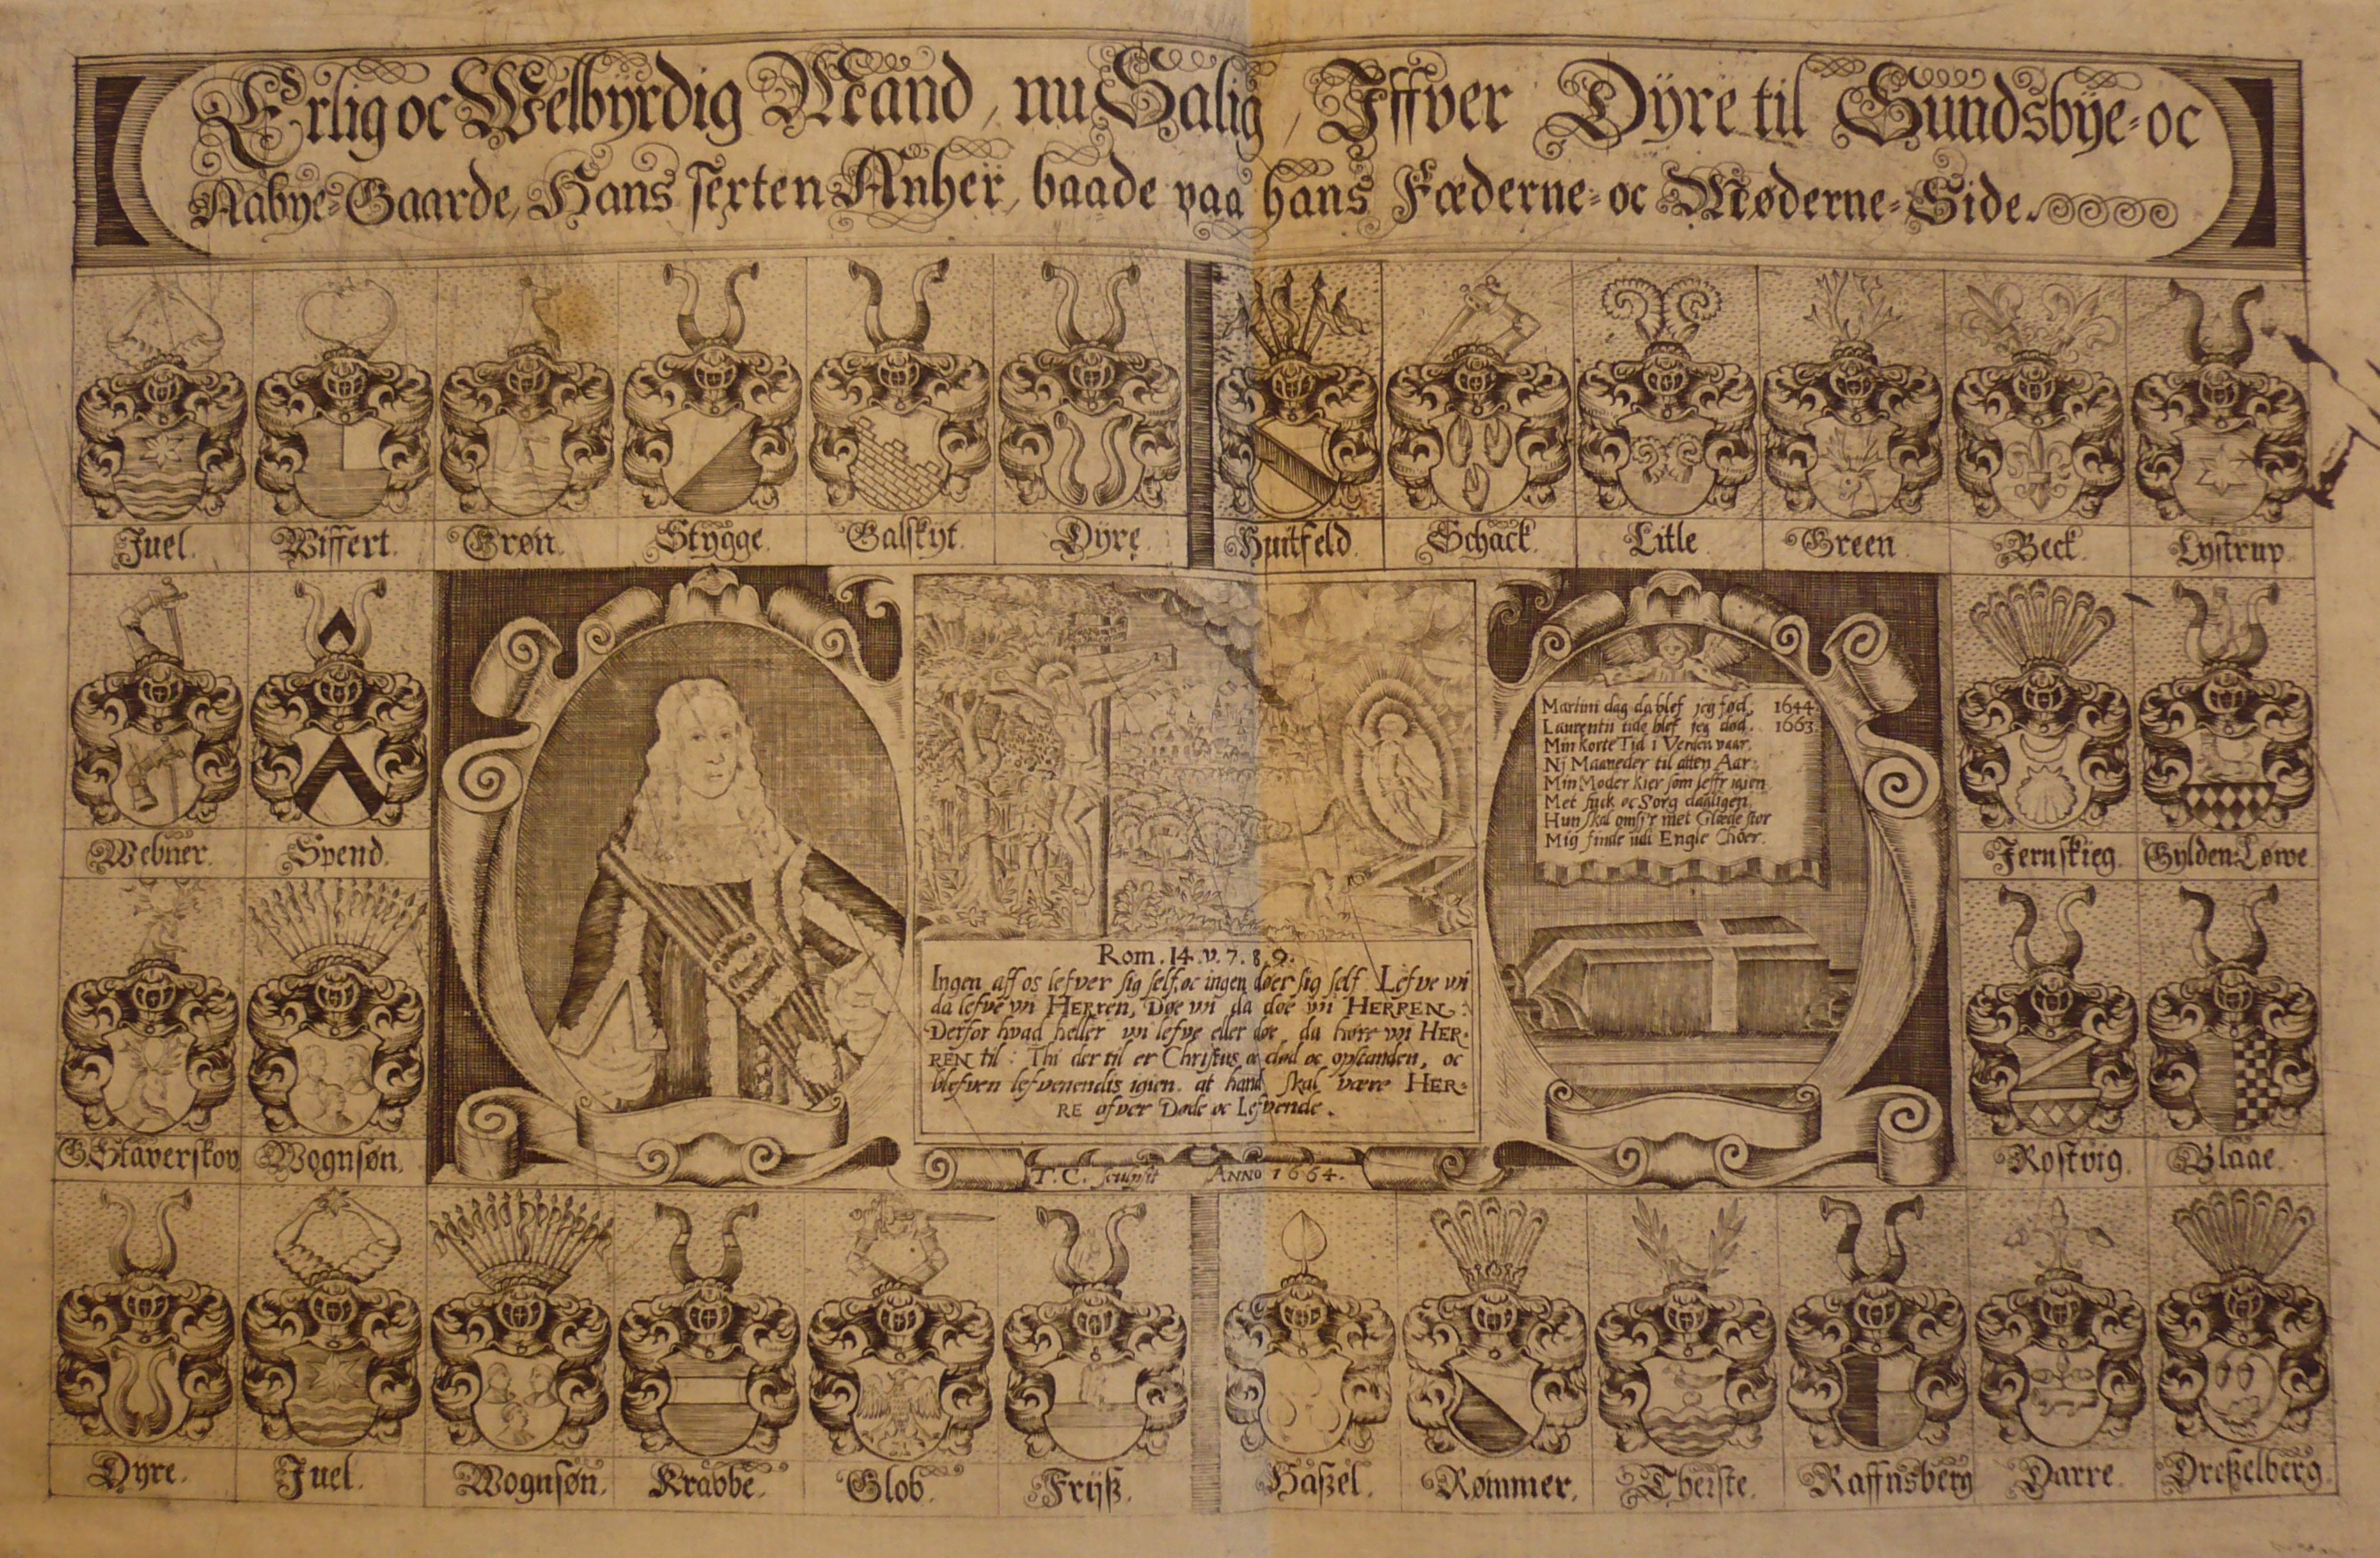 Erlig oc Welbyrdig Mand, nu Salig, Iffver Dÿre til Sundsbÿe=oc
Aabye=Gaarde, Hans sexten Anher, baade paa hans Fæderne=oc Møderne=Side.
Juel. Wiffert. Grøn. Stÿgge. Galskyt. Dÿre. Huitfeld. Schack. Litle. Green. Beck. Lystrup.
Webner. Spend. Jernskieg. Gylden Løwe
Martini dag da blef jeg fød, 1644
Laurentii tide blef jeg død. 1663.
Min korte Tid i Verden vaar.
Nj Maaneder til atten Aar:
Min Moder kier som leffr igien
Met suck oc Sorg dagligen,
Hun skal omsi'r met Glæde stor
Mig finde udi Engle Choer.
Rom. 14. v. 7. 8. 9.
Ingen aff os lefver sig self, oc ingen døer sig self. Lefve vi
da lefve vi HERren, Døe vi da døe vi HERREN:
Derfor hvad heller vi lefve eller døe, da høre vi HER=
REN til: Thi der til er Christus oc død oc opstanden, oc
blefven lefvenendis igien. at hand skal være HER=
RE ofver Døde oc Lefvende.
G. Slaverskov Wognsøn. Rostvig. Blaae.
T. C. sculpsit ANNO 1664.
Dyre. Juel. Wognsøn. Krabbe. Glob. Frÿß. Haßel. Rømmer. Theiste. Raffnsberg Darre. Dreßelberg.